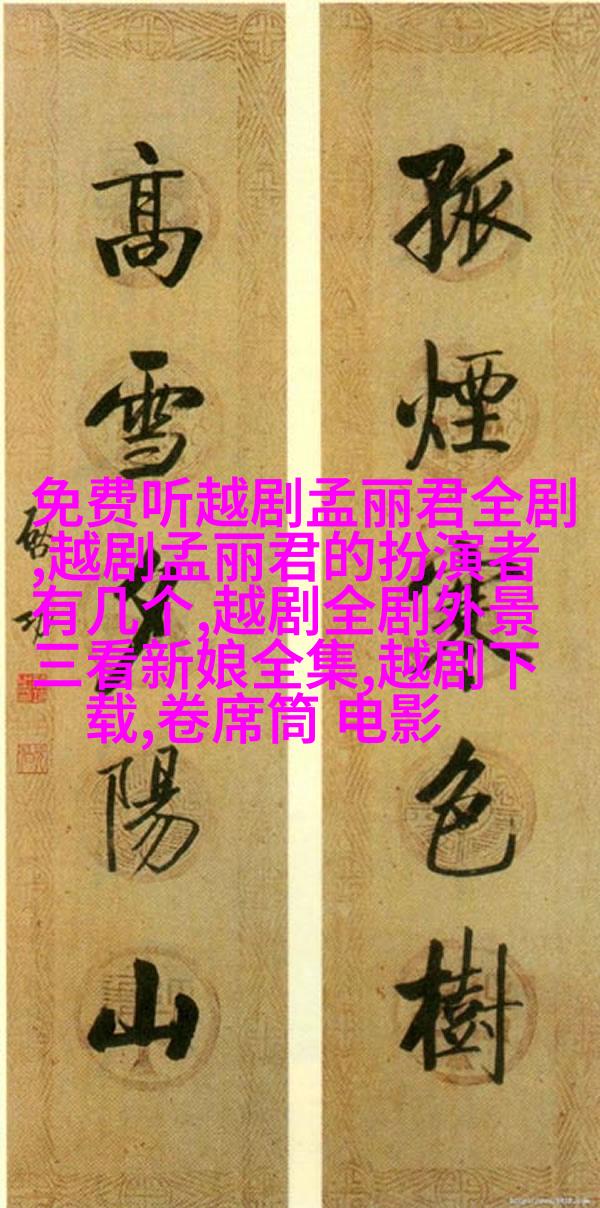 孤煙寒色樹
高雪夕陽山
免费听越剧孟丽君全剧
,越剧孟丽君的扮演者
有几个,越剧全剧外景
三看新娘全集,越剧下
载,卷席筒 电影